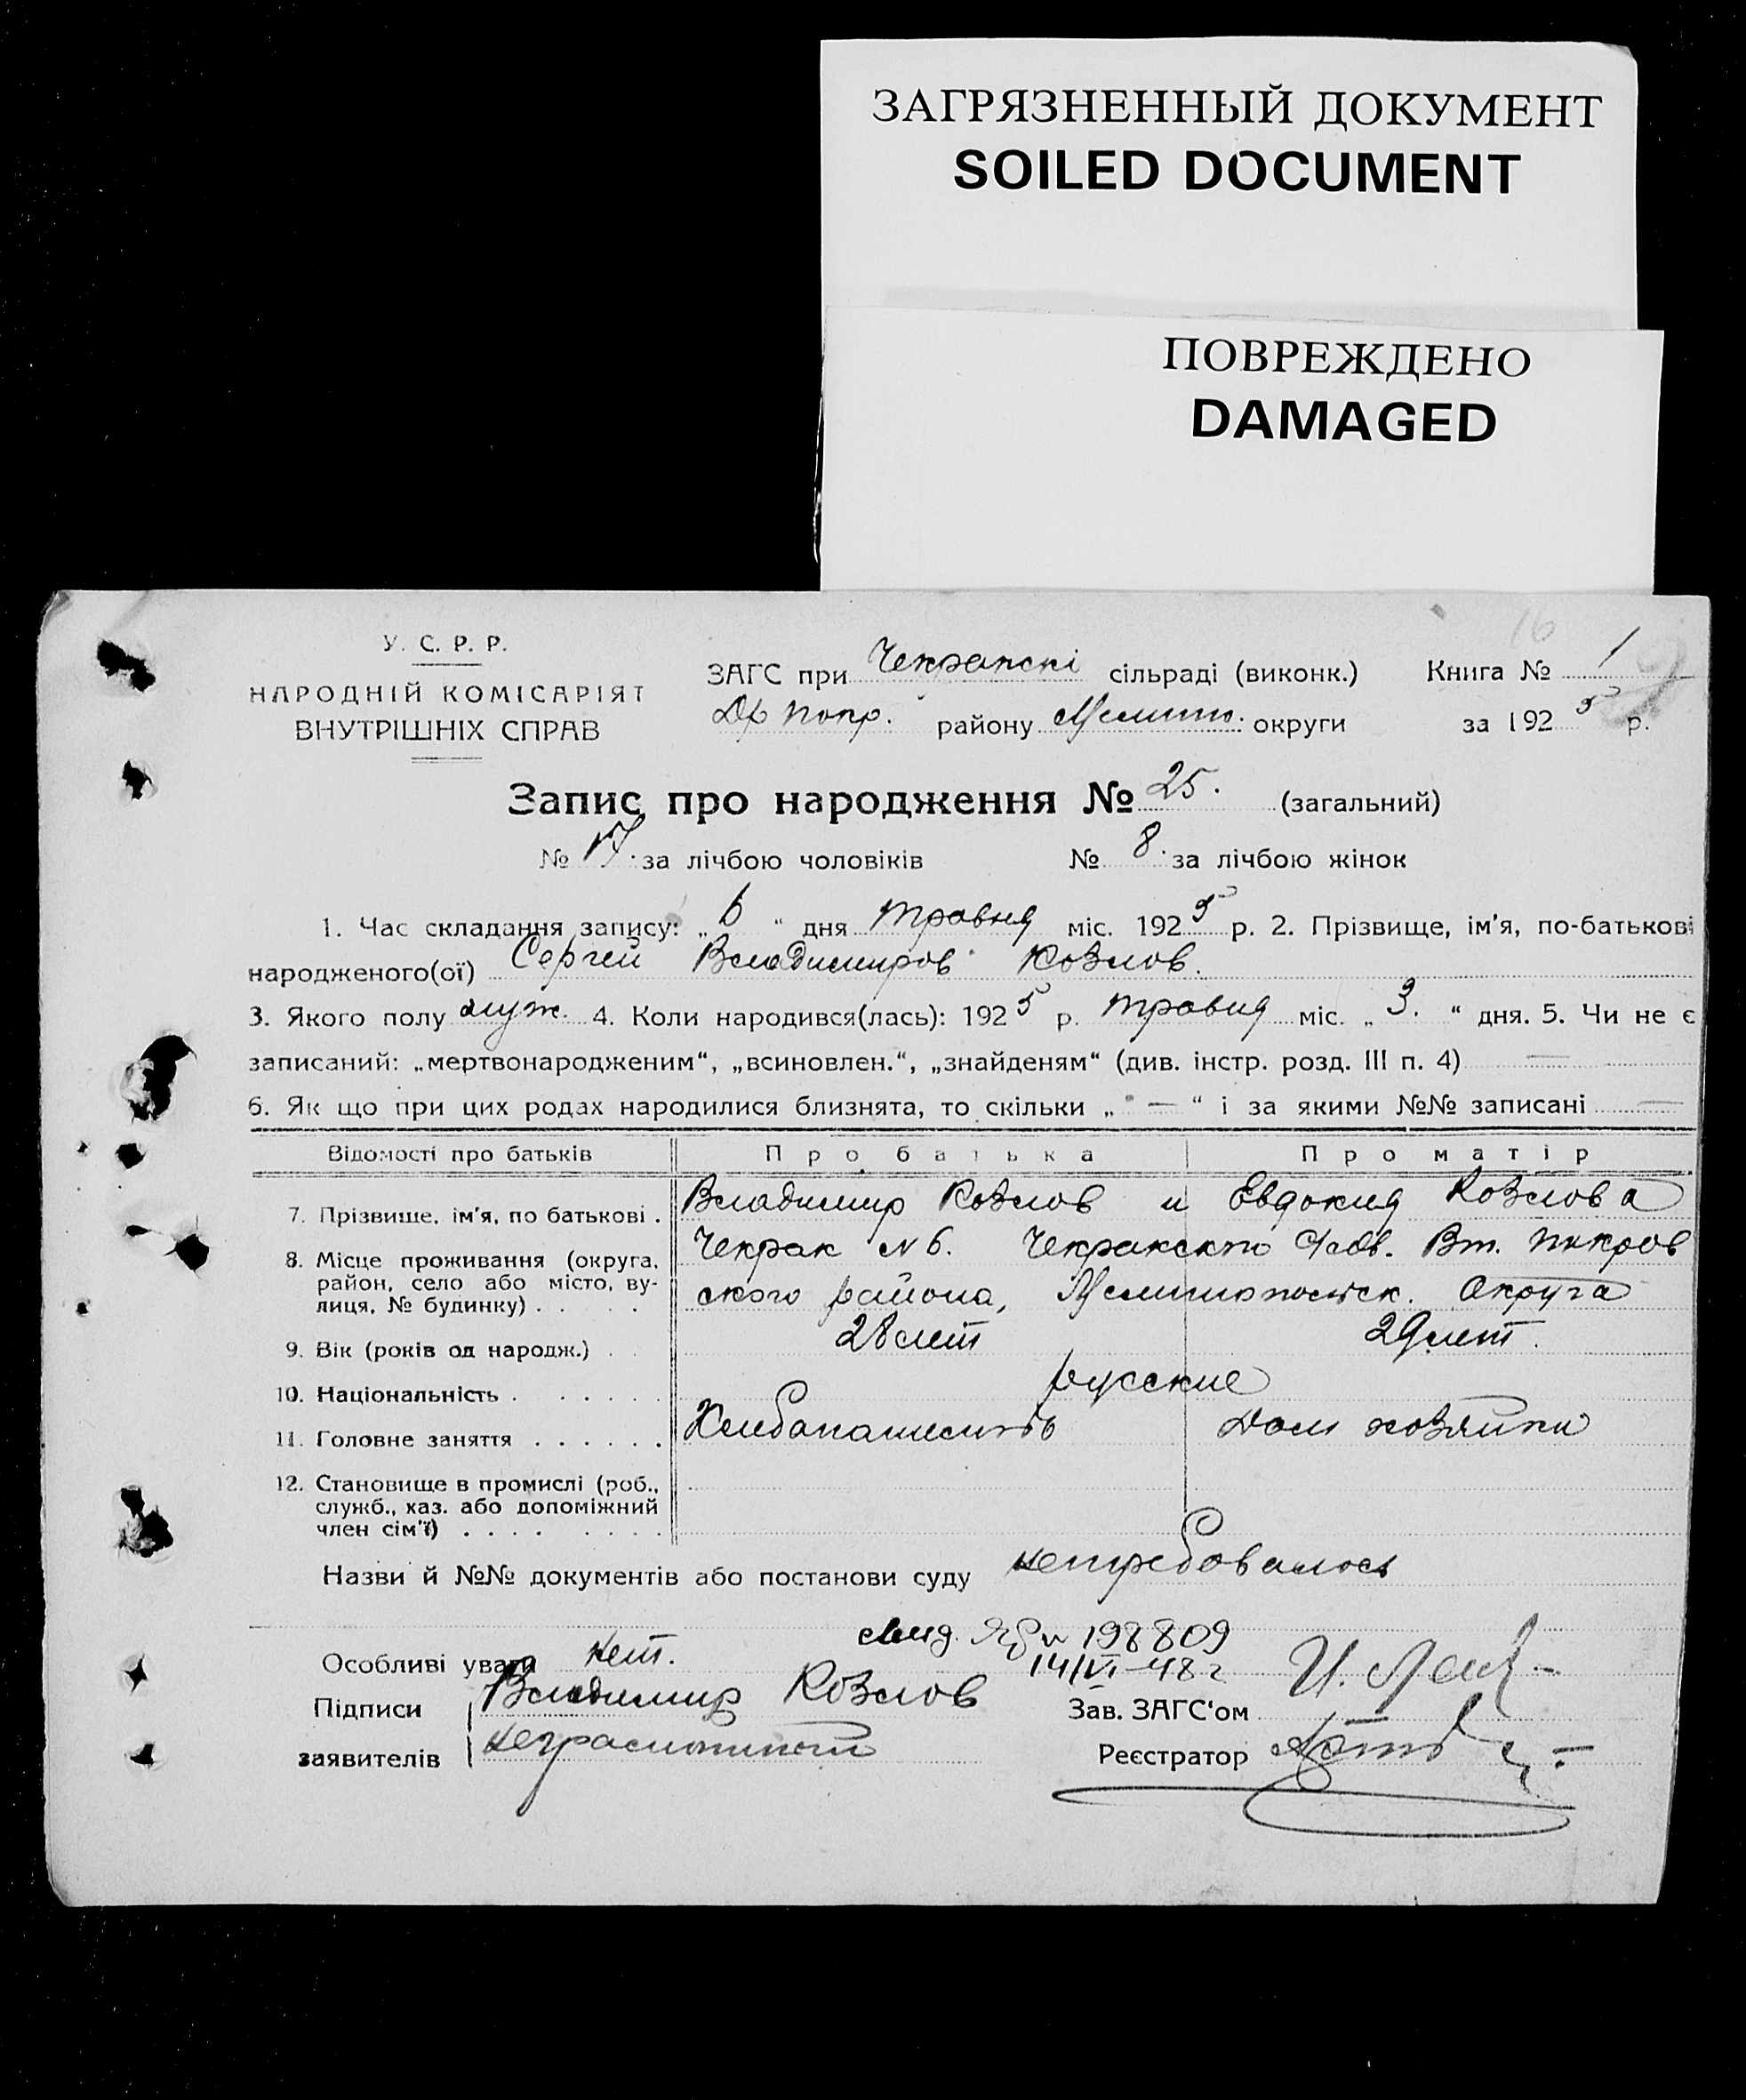 ЗАГРЯЗНЕННЫЙ ДОКУМЕНТ
SOILED DOCUMENT
ПОВРЕЖДЕНО
DAMAGED
16
У. С. Р. Р.
НАРОДНІЙ КОМІСАРІЯТ
ВНУТРІШНІХ СПРАВ
ЗАГС при Чекракскі сільраді (виконк.) Книга № 1
району Мелит. округи за 192 5 р.
Запис про народження № 25. (загальний)
№ 17. за лічбою чоловіків № 8. за лічбою жінок
1. Час складання запису: „ 6 “ дня травня міс. 192 5 р. 2. Прізвище, ім'я, по-батькові
народженого(ої) Сергей Владимиров Козлов.
3. Якого полу муж. 4. Коли народився(лась): 192 5 р. травня міс. „ 3. “ дня. 5. Чи не є
записаний: „мертвонародженим“, „всиновлен.“, „знайденям“ (див. інстр. розд. III п. 4) —
6. Як що при цих родах народилися близнята, то скільки „ — “ і за якими №№ записані —
Відомості про батьків Про батька Про матір
7. Прізвише, ім'я, по батькові . Владимир Козлов и Евдокия Козлова
8. Місце проживання (округа, Чекрак N 6. Чекракского Вт. Покров
район, село або місто, ву-
лиця, № будинку) . . . . ского района, Мелитопольск. Округа
9. Вік (років од народж.) . . 28 лет 29 лет.
10. Національність . . . . . . русские
11. Головне заняття . . . . . . Хлебопашество Дом хозяйка
12. Становище в промислі (роб.,
служб., хаз. або допоміжний
член сім'ї) . . . . . . . .
Назви й №№ документів або постанови суду нетребовалось
свид. 198809
Особливі уваги нет. 14/VI-48 г
Підписи Владимир Козлов Зав. ЗАГС'ом
заявителів неграмотной Реєстратор